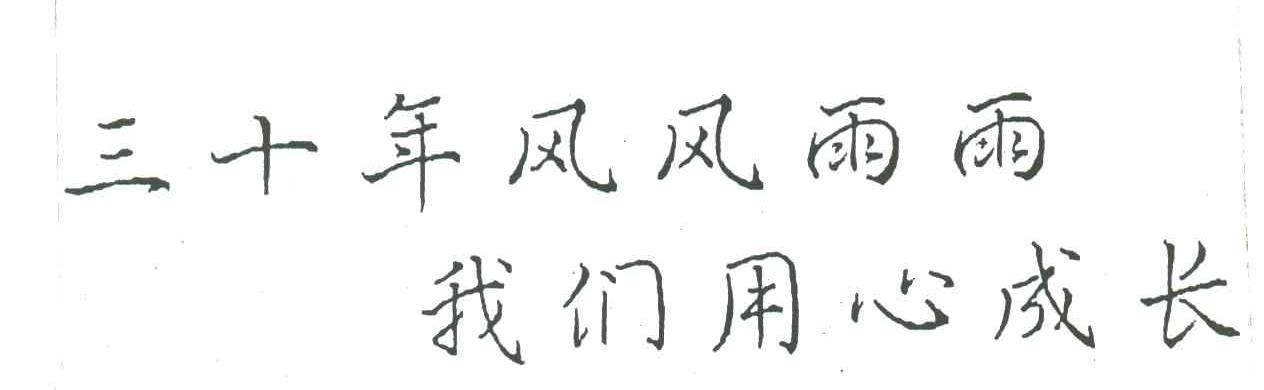 三十年风风雨雨
我们用心成长